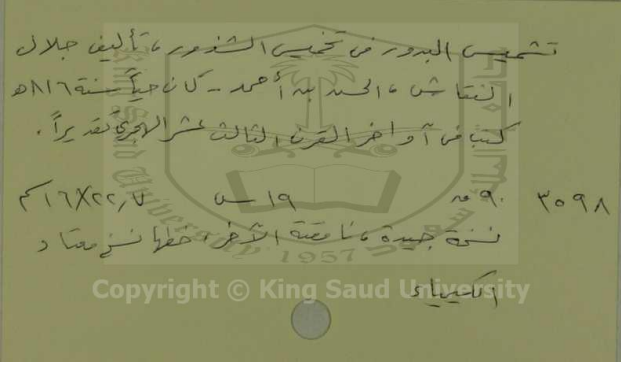 تشميس البدور في تخميس الشذور ، تأليف جلال
النقاش ، الحسن بن أحمد - كان حياً سنة ٨١٦هـ
كتب في أواخر القرن الثالث عشر الهجري تقديراً .
٣٥٩٨ ٩٠ ق ١٩ س ٢٢,٧×١٦ سم
نسخة جيدة ، ناقصة الآخر ، خطها نسخ معتاد
الكيمياء
Copyright © King Saud University
King Saud University
1957